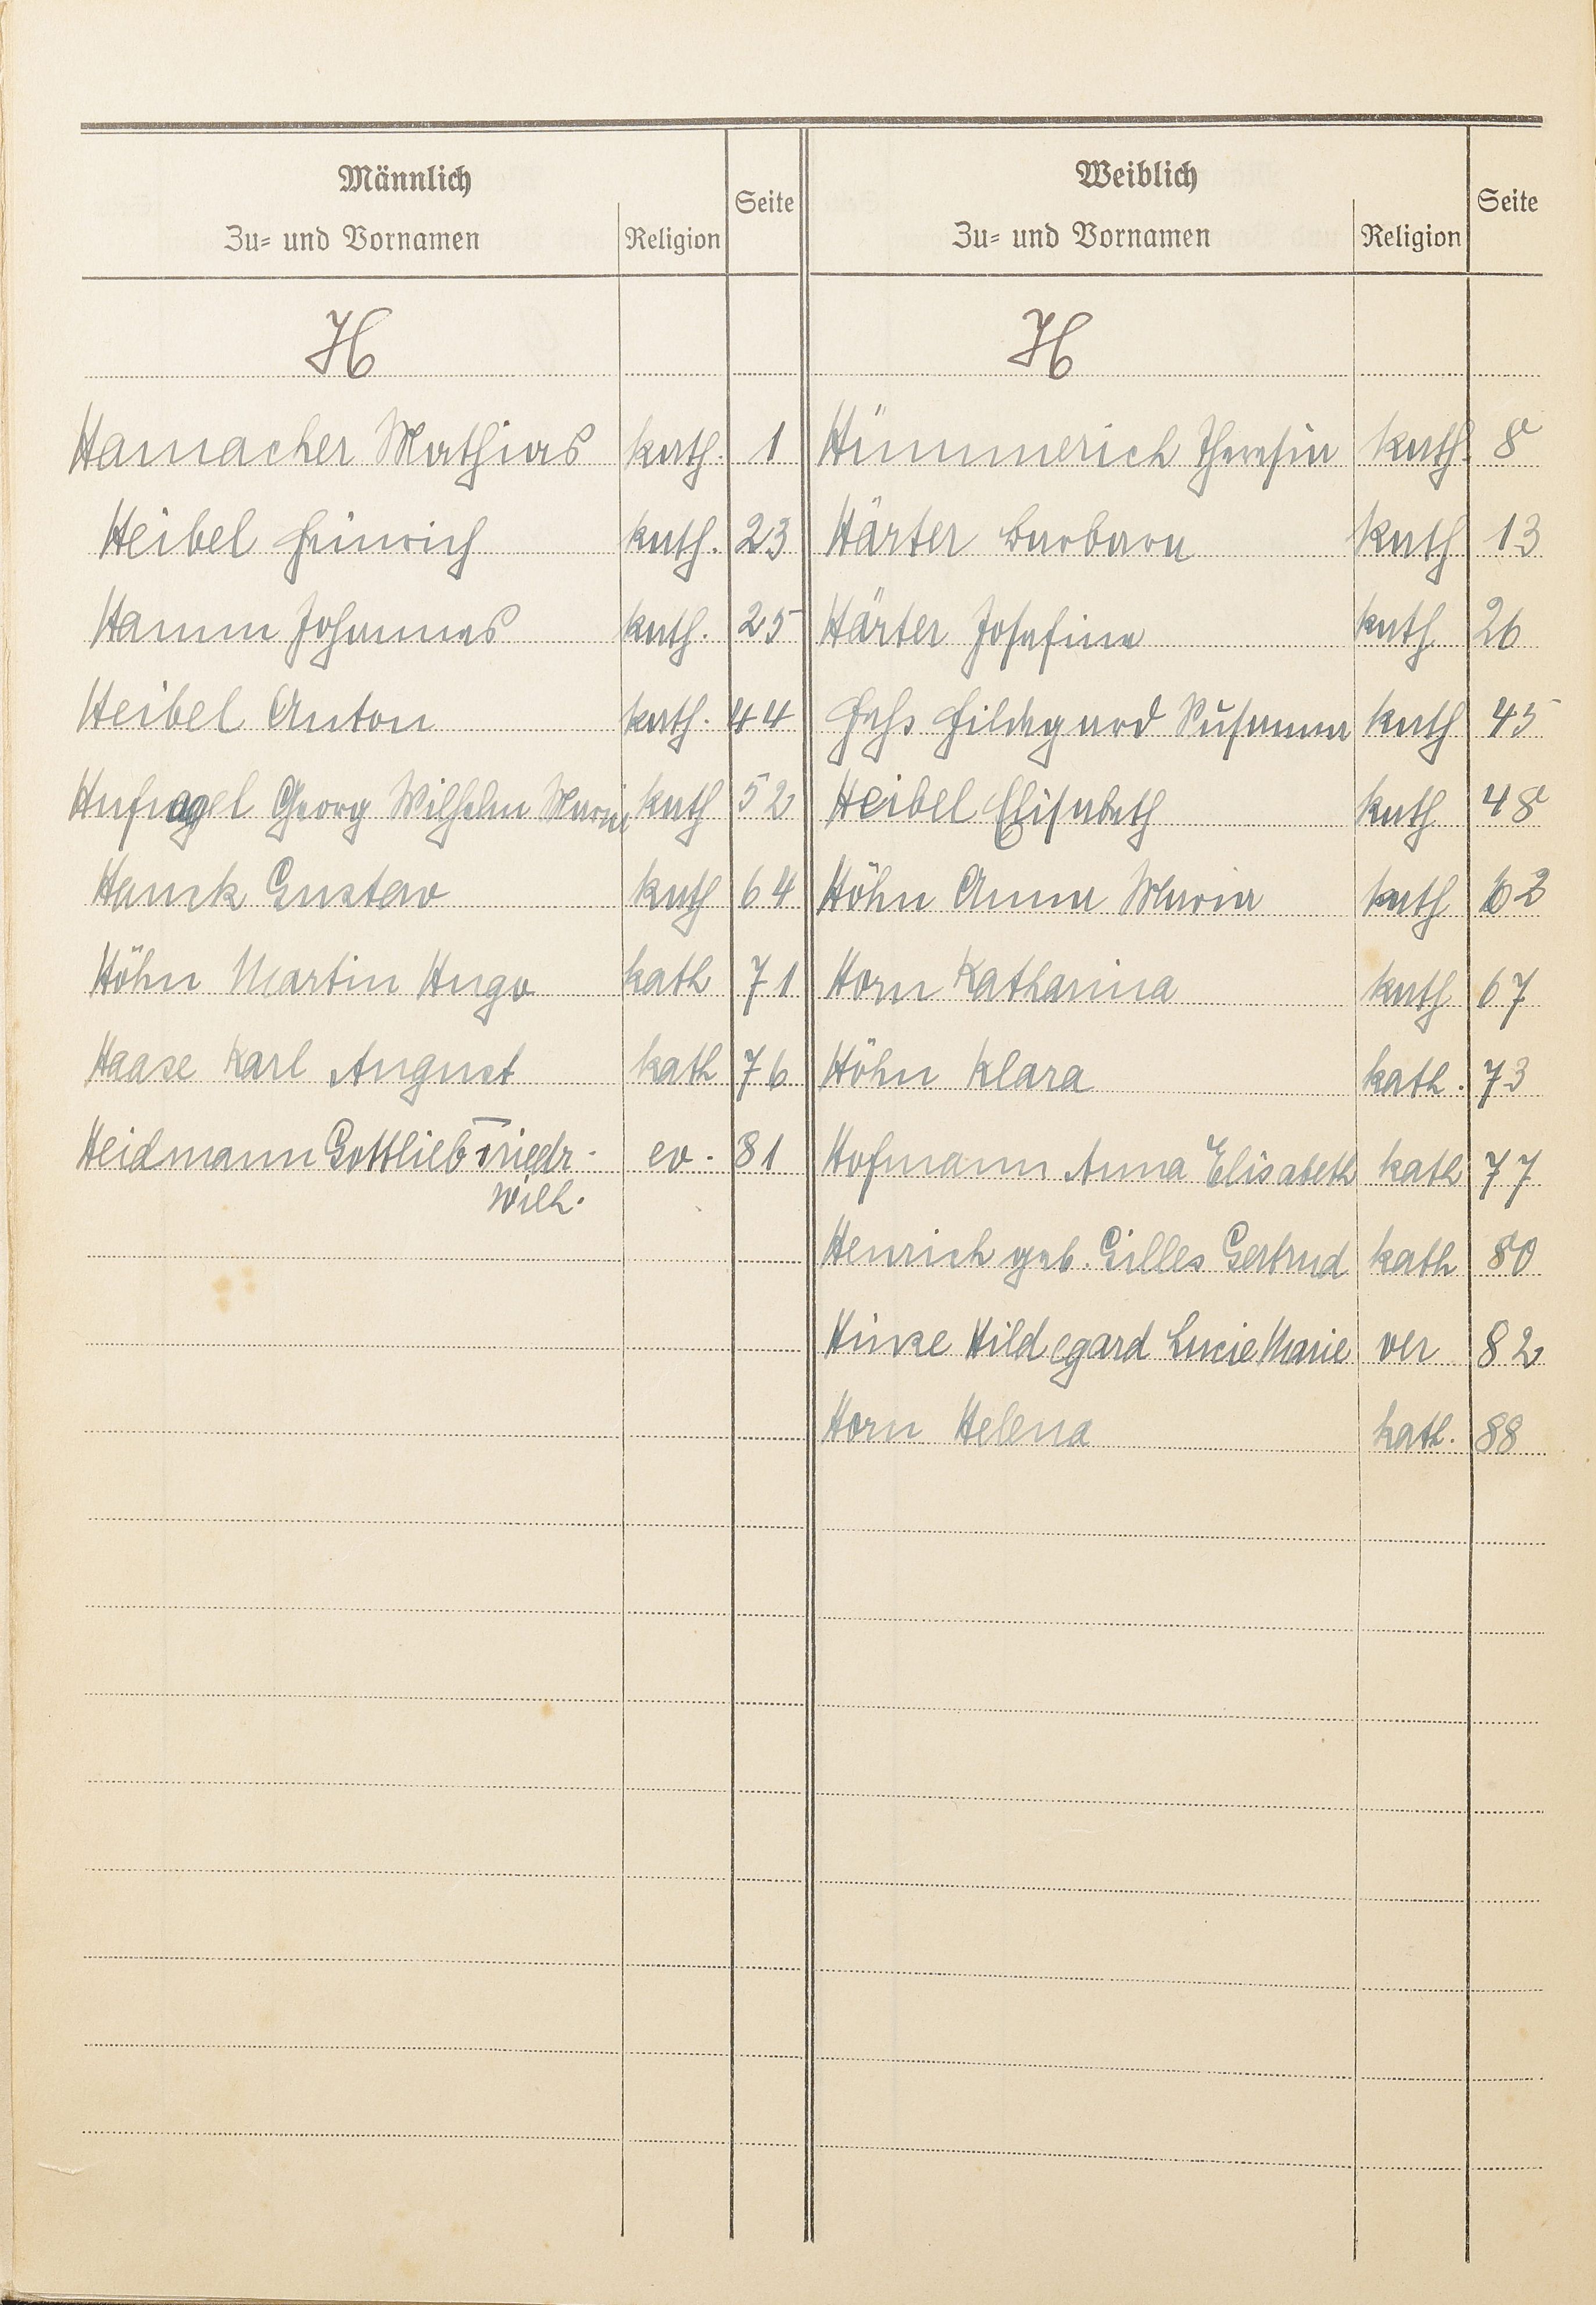 Männlich
Zu- und Vornamen Religion Seite
H
Hamacher Mathias kath. 1
Heibel Heinrich kath. 23
Hamm Johannes kath. 25
Heibel Anton kath. 44
Hufnagel Georg Wilhelm Maria kath 52
Hauck Gustav kath 64
Höhn Martin Hugo kath 71
Haase Karl August kath 76
Heidmann Gottlieb Friedr. ev. 81
Wilh.
Weiblich
Zu- und Vornamen Religion Seite
H
Hümmerich Theresia kath. 8
Härter Barbara kath 13
Härter Josefine kath 26
Hildegard Susanna kath 45
Heibel Elisabeth kath 48
Höhn Anna Maria kath 62
Horn Katharina kath 67
Höhn Klara kath. 73
Hofmann Anna Elisabeth kath 77
Henrich geb. Gilles Gertrud kath 80
Hildegard Lucie Marie 82
Horn Helena kath. 88